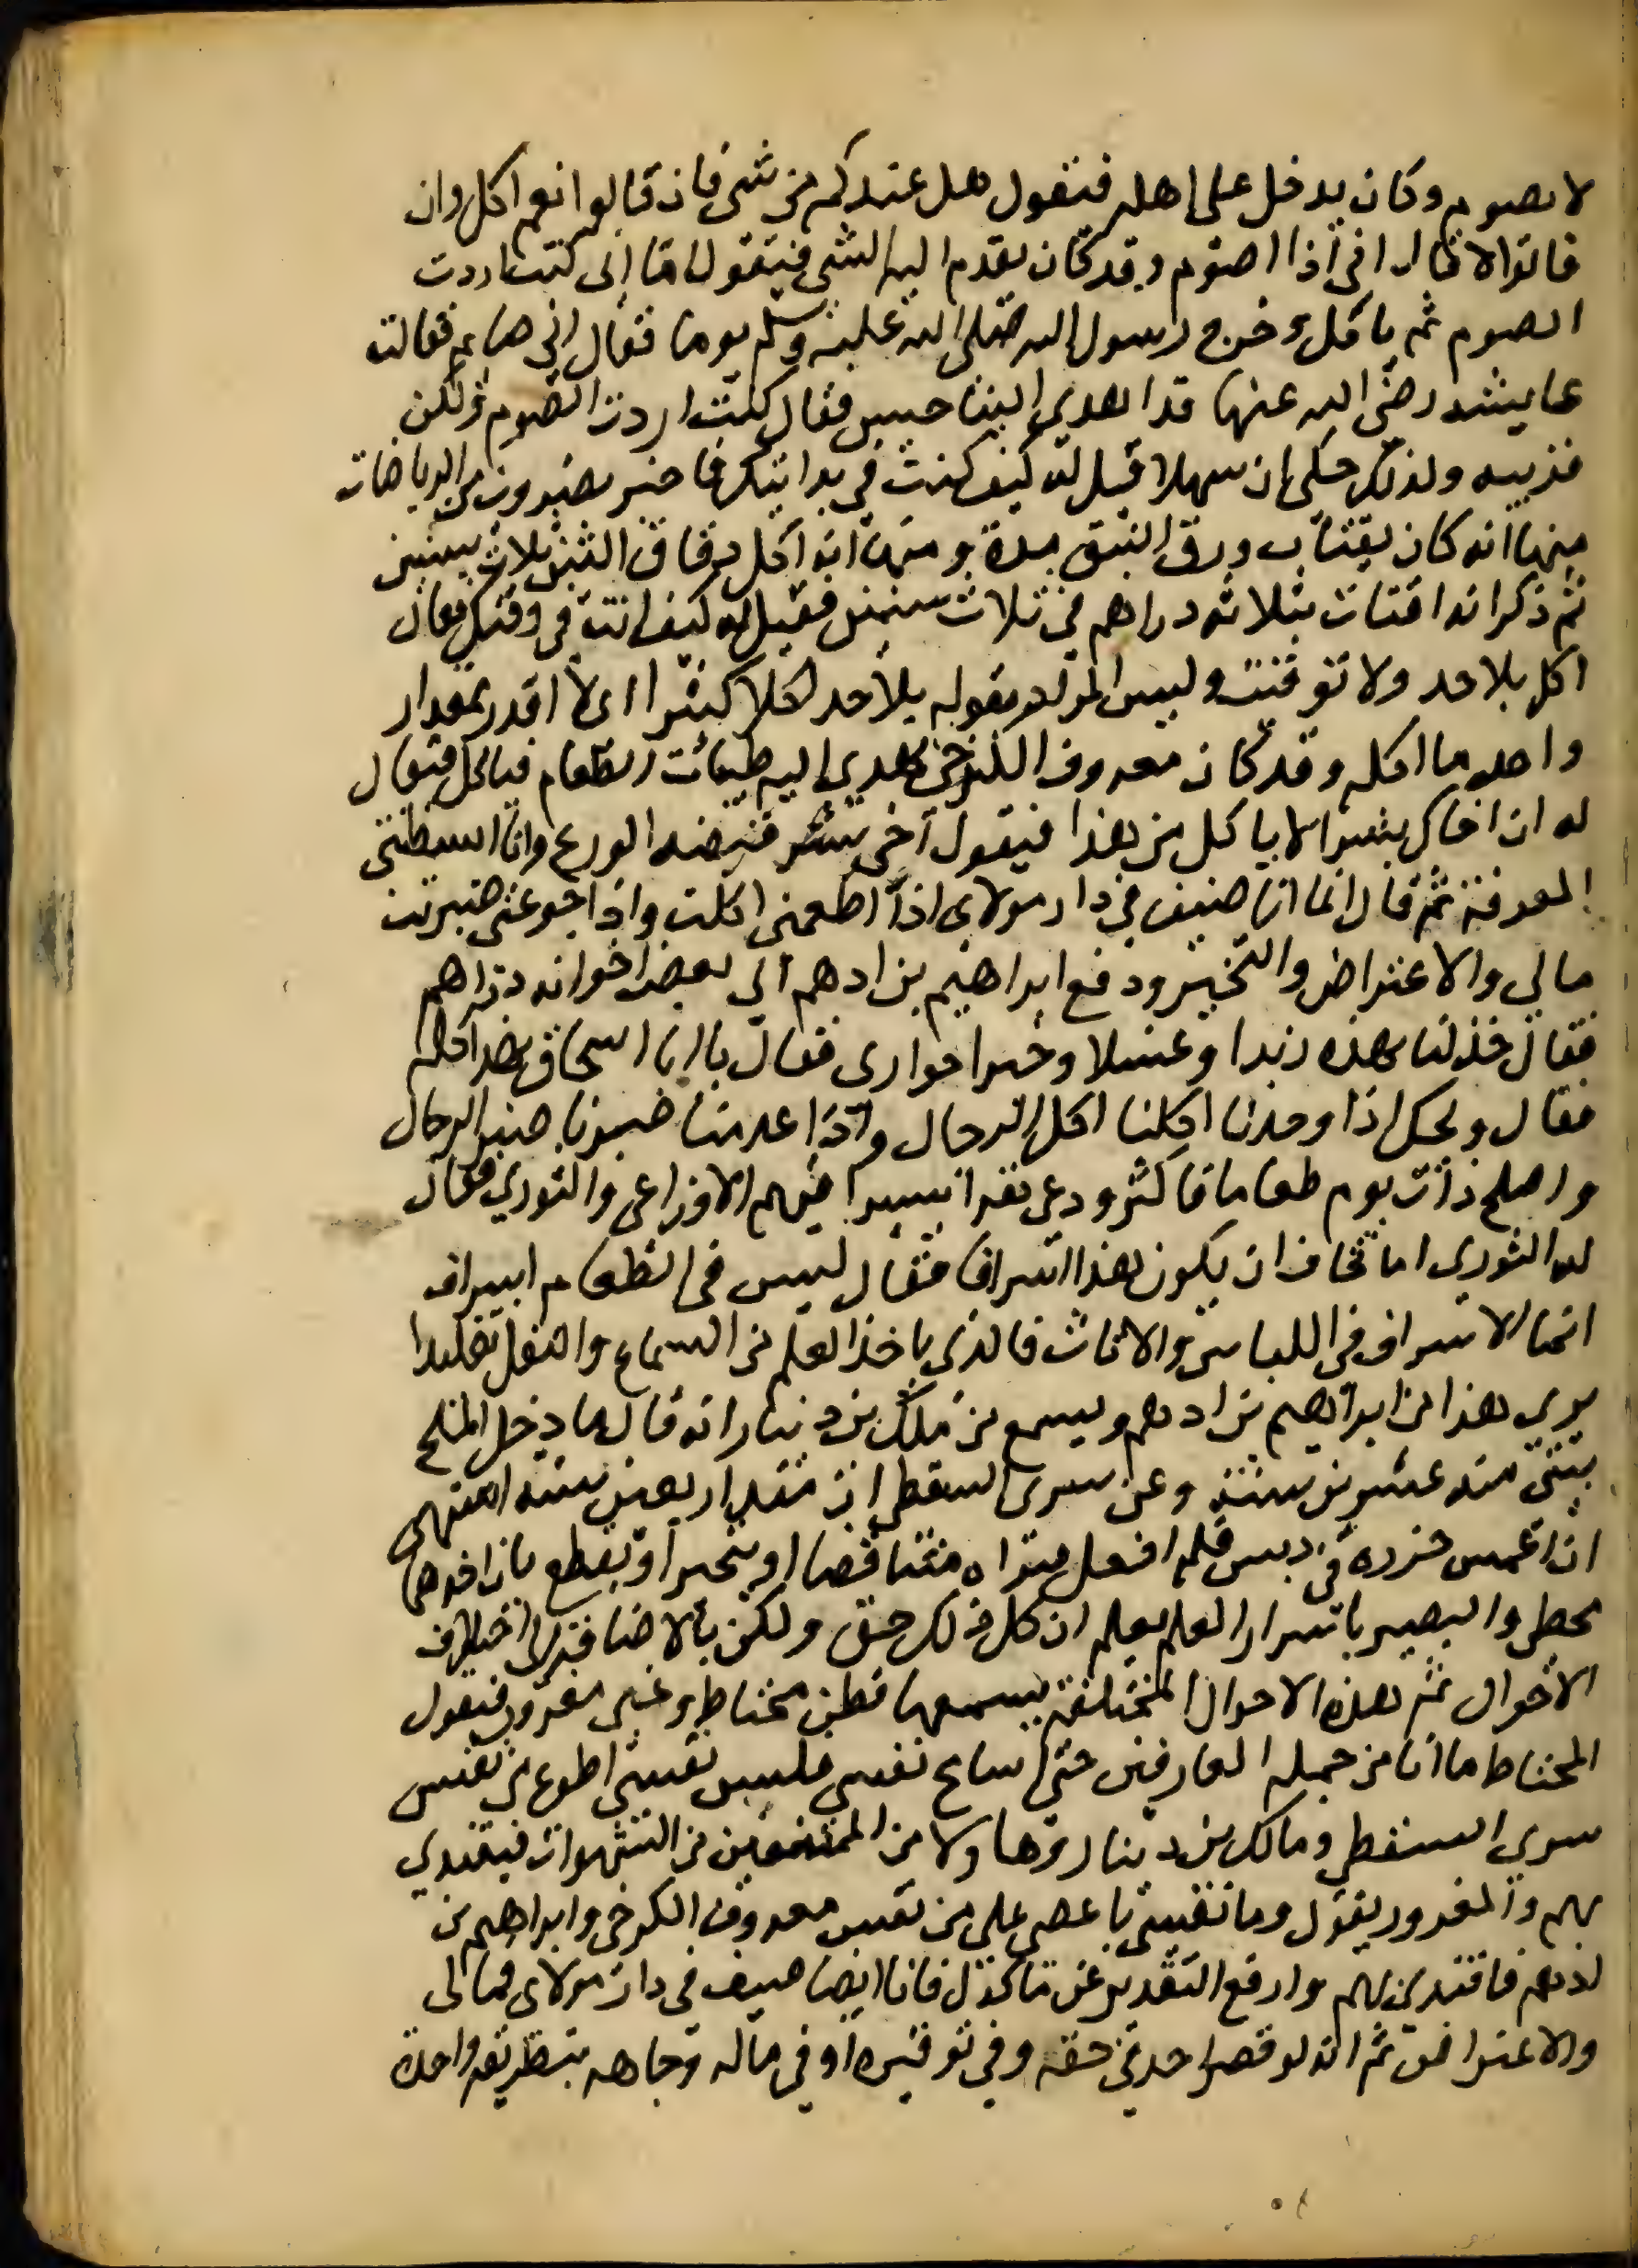 لا يصوم وكان يدخل على اهله فيقول هل عندكم من شى فان قالوا نعم اكل وان
قالوا لا قال انى اذا اصوم وقد كان يقدم اليه الشى فيقول اما انى كنت اردت
الصوم ثم ياكل وخرج رسول الله صلى الله عليه وسلم يوما فقال انى صايم فقالت
عايشه رضى الله عنها قد اهدي الينا حيس فقال كنت اردت الصوم ولكن
قربيه ولذلك حكى ان سهلا قيل له كيف كنت في بدايتك فاخبر بضروب من الرياضات
منها انه كان يقتات ورق النبق مدة ومنها انه اكل دقاق التبن ثلاث سنين
ثم ذكر انه اقتات بثلاثه دراهم في ثلاث سنين فقيل له كيف انت في وقتك فقال
اكل بلا حد ولا توقيت وليس المراد بقوله بلا حد اكلا كثيرا اى لا اقدر بمقدار
واحد ما اكله وقد كان معروف الكرخى يهدى اليه طيبات الطعام فياكل فيقال
له ان اخاك بشرا لا ياكل من هذا فيقول اخى بشر قبضه الورع وانا بسطتنى
المعرفة ثم قال انما انا ضيف في دار مولاى اذا اطعمنى اكلت واذا جوعنى صبرت
مالي والاعتراض والتخير ودفع ابراهيم بن ادهم الى بعض اخوانه دراهم
فقال خذ لنا بهذه زبدا وعسلا وخبزا حوارى فقال يا ابا اسحاق بهذا كله
فقال ويحك اذا وجدنا اكلنا اكل الرجال واذا عدمنا صبرنا صبر الرجال
واصلح ذات يوم طعاما فاكثر ودعى نفرا يسيرا فيهم الاوزاعى والثوري فقال
له الثوري اما تخاف ان يكون هذا اسرافا فقال ليس في الطعام اسراف
انما الاسراف في اللباس والاثاث فالذى ياخذ العلم من السماع والنقل تقليدا
يرى هذا من ابراهيم بن ادهم ويسمع من ملك بن دينار انه قال ما دخل الملح
بيتى منذ عشرين سنة وعن سرى السقطى انه منذ اربعين سنه اشتهى
ان اغمس جزرة في دبس فلم افعل فيراه متناقضا او يتحير او يقطع بان احدهما
مخطى والبصير باسرار العلم يعلم ان كل ذلك حق ولكن بالاضافة الى اختلاف
الاحوال ثم هذه الاحوال المختلفة يسمعها فطن محتاط وغبى مغرور فيقول
المحتاط ما انا من جملة العارفين حتى اسامح نفسى فليس نفسى اطوع من نفس
سري السقطى ومالك بن دينار وها ولا من الممتنعين من الشهوات فيقتدي
بهم والمغرور يقول وما نفسى باعصى على من نفس معروف الكرخى وابراهيم بن
ادهم فاقتدى بهم وارفع التقدير عن ماكولى فانا ايضا ضيف في دار مولاى فمالى
والاعتراض ثم انه لو قصر احد في حقه وفي توقيره او في ماله وجاهه بطريقه واحدة